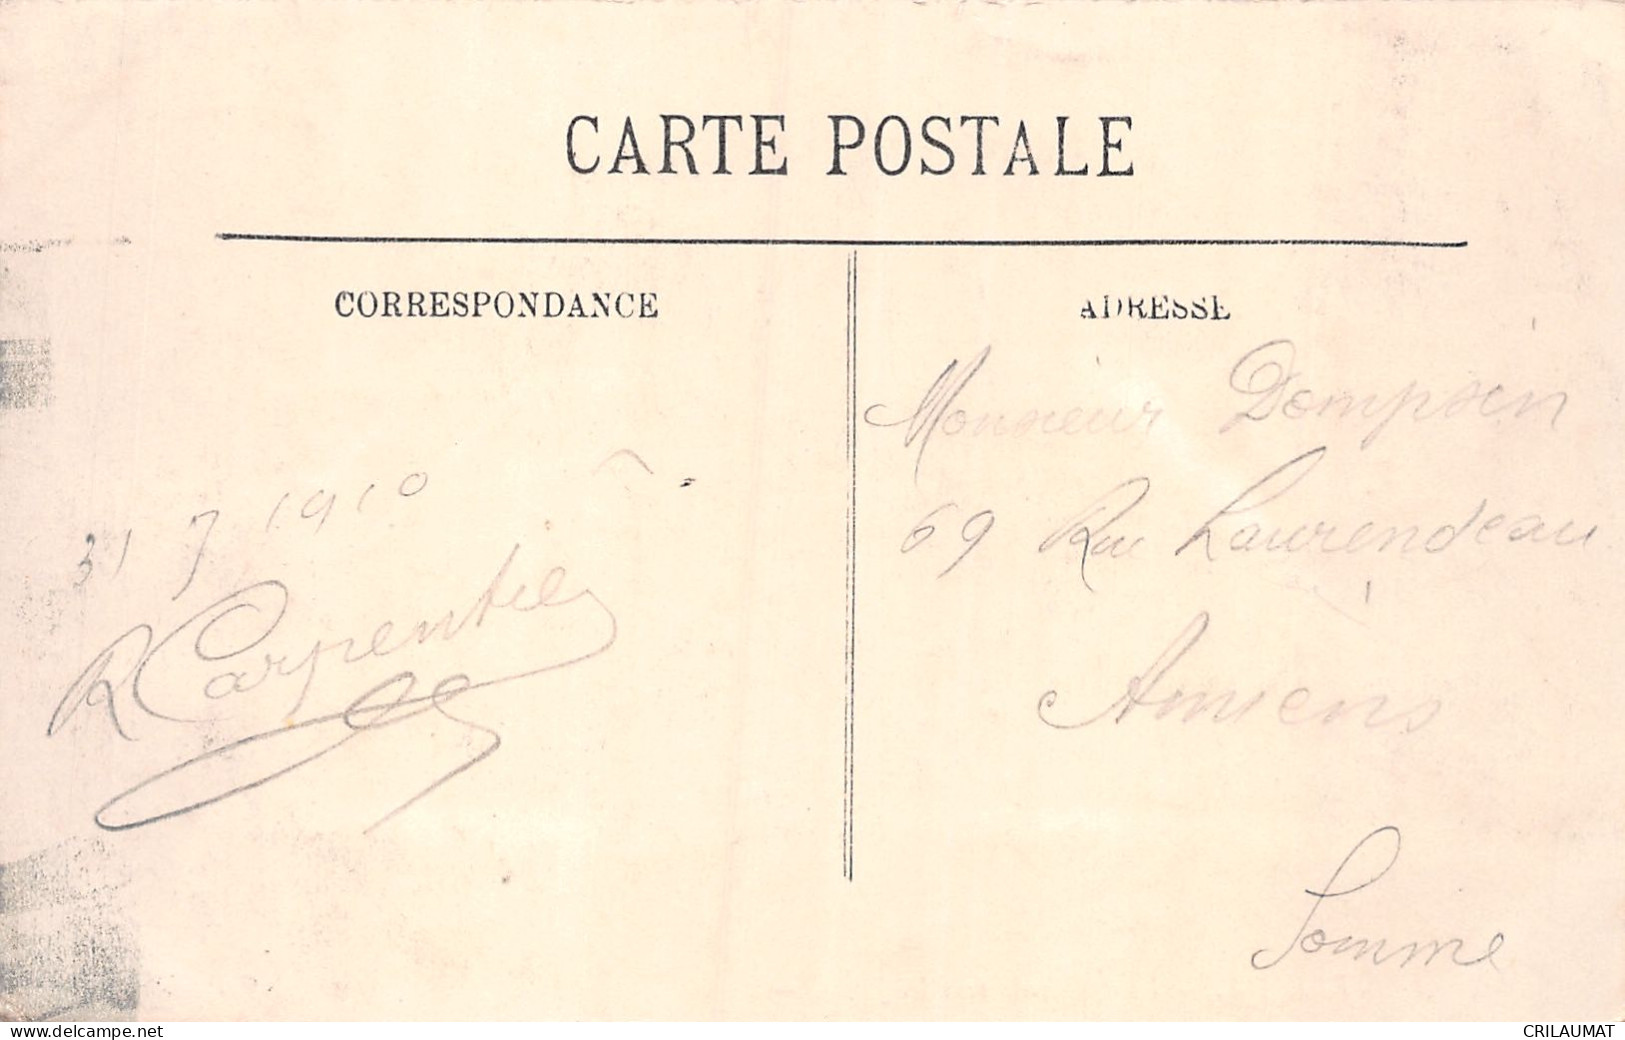 CARTE POSTALE
CORRESPONDANCE
ADRESSE
31 7 1910
R Carpentier
Monsieur Dompsin
69 Rue Laurendeau
Amiens
Somme
www.delcampe.net
CRILAUMAT